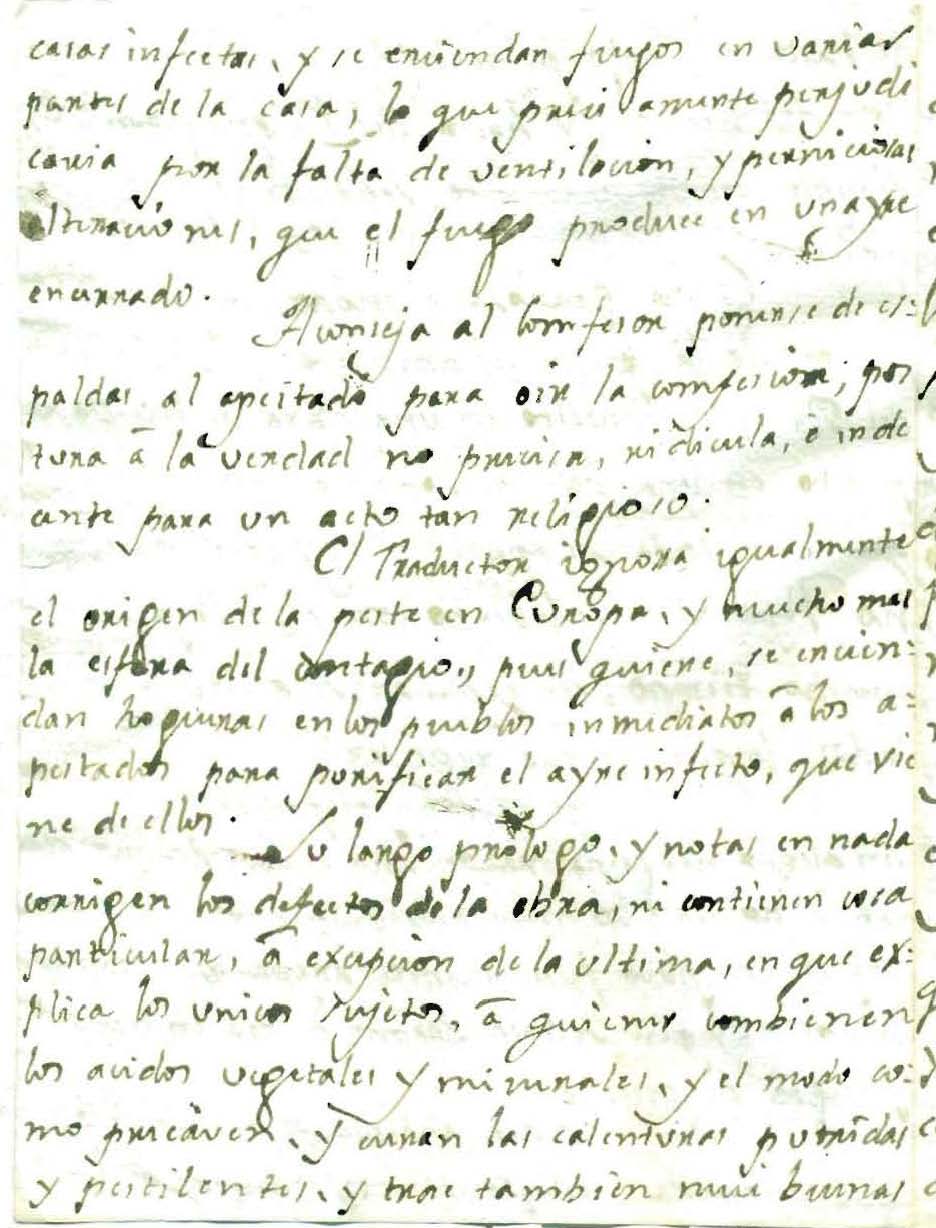 casas infectas, y se enciendan fuegos en varias
partes de la casa, lo que precisamente perjudi
caria por la falta de ventilacion, y perniciosas
alteraciones, que el fuego produce en un ayre
encerrado.
Aconseja al Comfesor ponerse de es=
paldas al apestado para oir la comfesion; pos
tura â la verdad no precisa, ridicula, e inde
cente para un acto tan religioso.
El Traductor ignora igualmente
el origen de la peste en Europa, y mucho mas
la esfera del contagio, pues quiere, se encien=
dan hogueras en los pueblos inmediatos â los a=
pestados para purificar el ayre infecto, que vie
ne de ellos.
Su largo prologo, y notas en nada
corrigen los defectos de la obra, ni contienen cosa
particular, â excepcion de la ultima, en que ex=
plica los unicos sujetos, â quienes combienen
los acidos vegetales y minerales, y el modo co=
mo precaven, y curan las calenturas putridas
y pestilentes, y trae tambien mui buenas